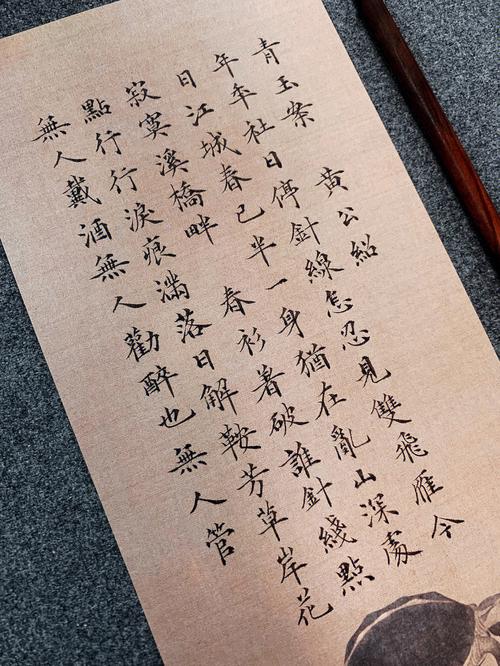 青玉案 黃公紹
年年社日停針線怎忍見雙飛雁今
日江城春已半一身猶在亂山深處
寂寞溪橋畔 春衫着破誰針綫點
點行行淚痕滿落日解鞍芳草岸花
無人戴酒無人勸醉也無人管